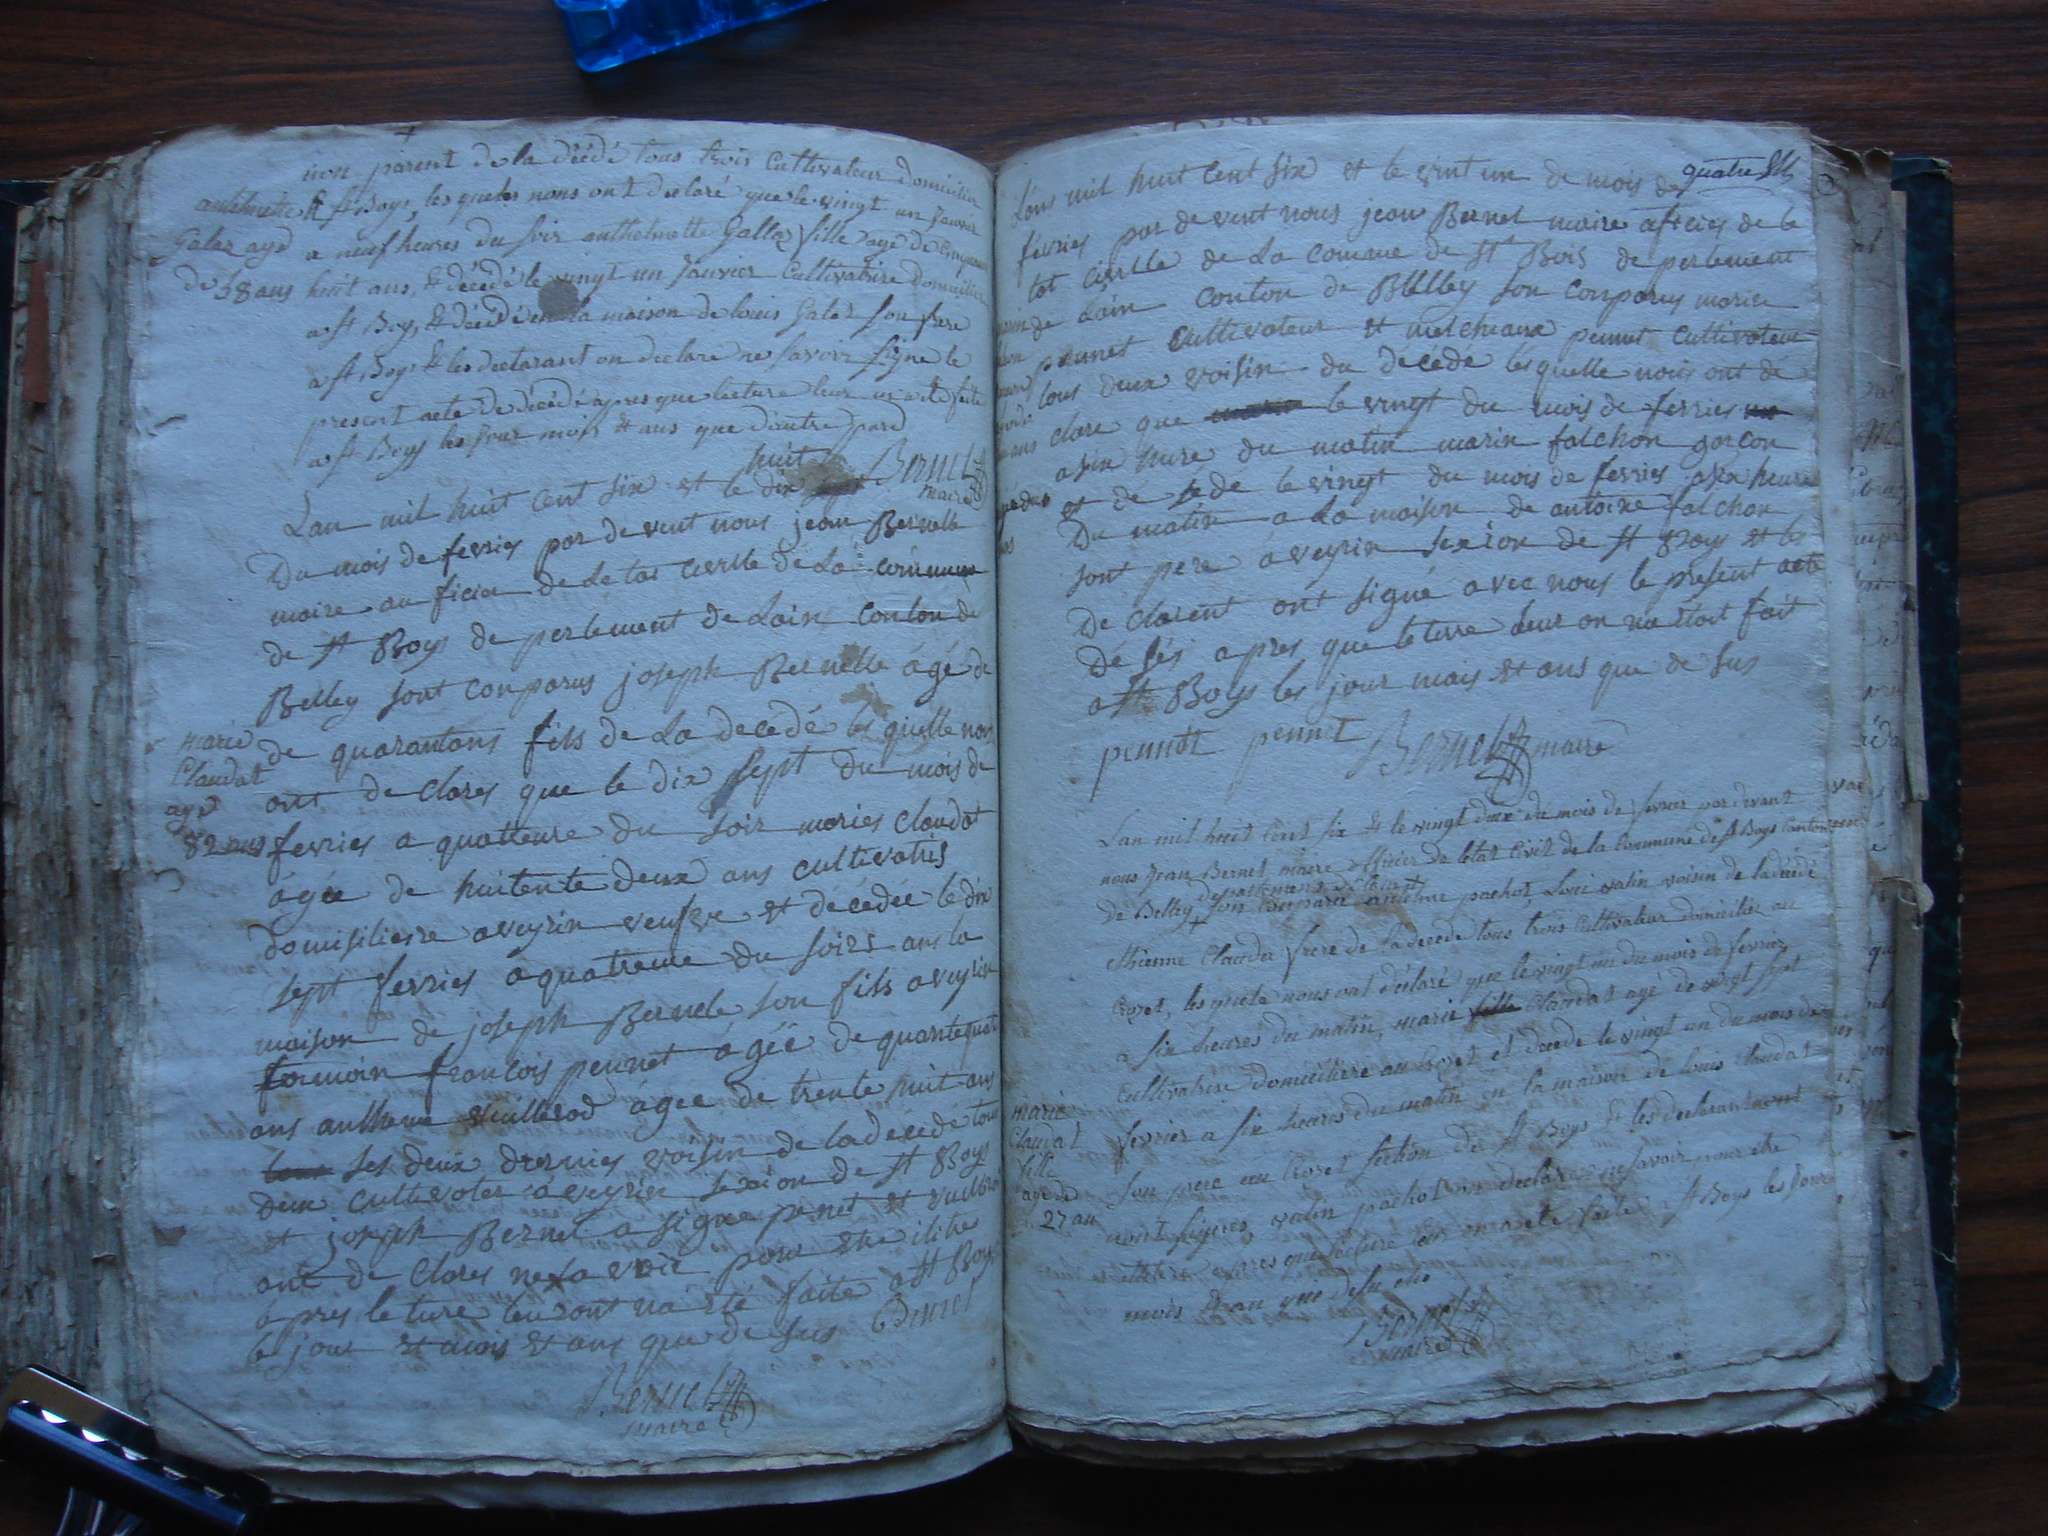 non parent de la décédé tous trois Cultivateur domicilier
a St Boys, les quels nous ont declaré que le vingt un Janvier
a neuf heures du soir anthelmette Gallaz fille agé de Cinquante
huit ans, & décédé le vingt un Janvier Cultivatrire Domicilier
a St Boys, & décédé en la maison de louis Galaz son frere
a St Boys & les declarant on declare ne savoir signe le
present acte de décédé apres que lecture leur en a eté faite
a St Boys les jour mois & ans que d'autre pard
Bernet
maire
anthelmette
Galaz agé
de 58 ans
huit
Lan mil huit cent six et le dix
Du mois de fevries par de vent nous jean Bernelle
maire au ficier de Le tat civille de La commune
de St Boys de perlement de Lain conton de
Belley sont conparus joseph Bernelle ágé de
de quarantans fils de La decedé les quelle nous
ont de clares que le dix sept du mois de
fevries a quatteure du soir maries claudat
ágée de huitente deux ans cultivatris
domisilieire a veyrin veufve et décédée le dix
sept fevries a quatreure du soirs ans la
maison de joseph Bernele son fils a veyrin
temoin francois pennet ágée de quarantequat
ans anthelme vuillerod ágee de trente huit ans
tous les deux dernies voisin de la décédé tous
deux cultivoter a veyrin sexion de St Boys
et joseph Bernet a signe penet et vuillerod
ont de clares ne sa voir pour etre ilitre
apres le ture leur ont na eté faite a St Boys
le jour et mois et ans que de sus Bernet
Bernet
maire
marie
Claudat
agé
82 ans
quatre
Lans mil huit cent six et le vint un de mois de
fevries par de vent nous jean Bernet maire aficies de le
tat civille de La comune de St Bois de perlement
de Lain conton de Bellley son conparus marin
pennet cultivateur et melchieaux pennet cultivateur
tous deux voisin du decede lesquelle nous ont de
clare que le vingt du mois de fevries
a six hure du matin marin falchon garcon
et de se de le vingt du mois de fevries a six heure
Du matin a La maison de antoine falchon
sont pere a veyrin sexion de St Boys et les
De clarent ont signé avec nous le present acte
dé sés a pres que leturre leur on na etoit fait
a St Boys les jour mois et ans que de sus
pennet pennet Bernet maire
Lan mil huit cent six & le vingt deux du mois de fevrier par devant
nous Jean Bernet maire officier de letat Civil de la Commune de St Boys Canton
de partement de Lain
de Belley son Comparu anthelme pachot, Loui valin voisin de la décédé
Ethienne Claudat frere de la decedé tous trois Cultivateur domicilier au
Crozet, les quels nous ont déclaré que le vingt un du mois de fevrier
a six heures du matin, marie fille Claudat agé de vingt sept
Cultivatrise domiciliere au Crozet et decede le vingt un du mois de
fevrier a six heures du matin en la maison de louis Claudat
son pere au Crozet section de St Boys & les declarant ont
nont signes valin pachot on declare ne savoir pour etre
illitere apres que lecture leur en a eté faite a St Boys les jour
mois & an que desu
Bernet
maire
marie
Claudat
fille
agé de
27 an